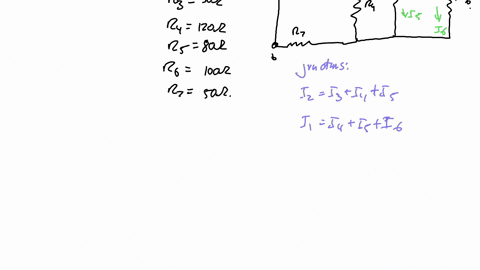 R4 = 12Ω
R5 = 8Ω
R6 = 10Ω
R7 = 5Ω.
R7
R4
↓I5
I6
b
junctions:
I2 = I3 + I4 + I5
I1 = I4 + I5 + I6